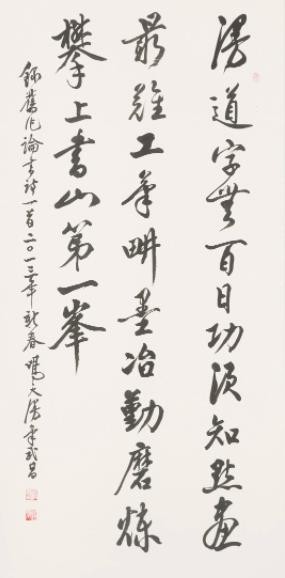 漫道字無百日功須知點畫
最難工筆畊墨冶勤磨煉
攀上書山第一峯
錄舊作論書詩一首二〇一三年新春大漫筆武昌